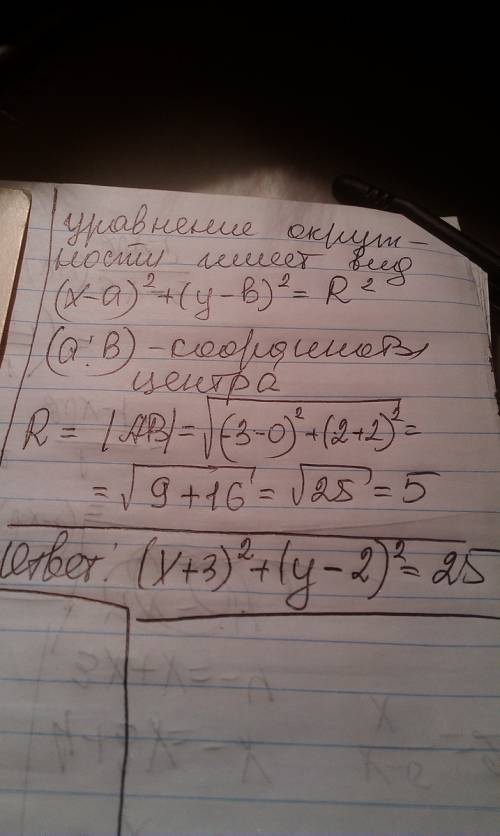 уравнение окруж-
ности имеет вид
(x-a)²+(y-b)²= R²
(a;b) - координаты
центра
R = |AB| = √(-3-0)²+(2+2)² =
= √9+16 = √25 = 5
Ответ: (x+3)²+(y-2)²= 25